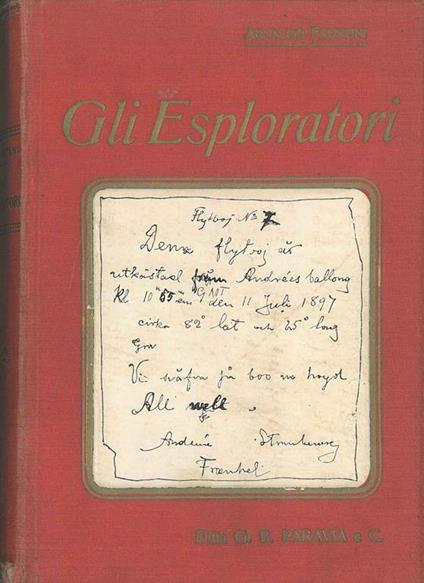 Arnaldo Faustini
Gli Esploratori
Flytboj No 7
Dena flytboj är
utkastad från Andrées ballong
Kl 10 55 em GMT den 11 Juli 1897
cirka 82° lat och 25° long
Grw
Vi sväfva på 600 m höjd
All well.
Andrée Strindberg
Frænkel
Ditta G. B. PARAVIA e C.